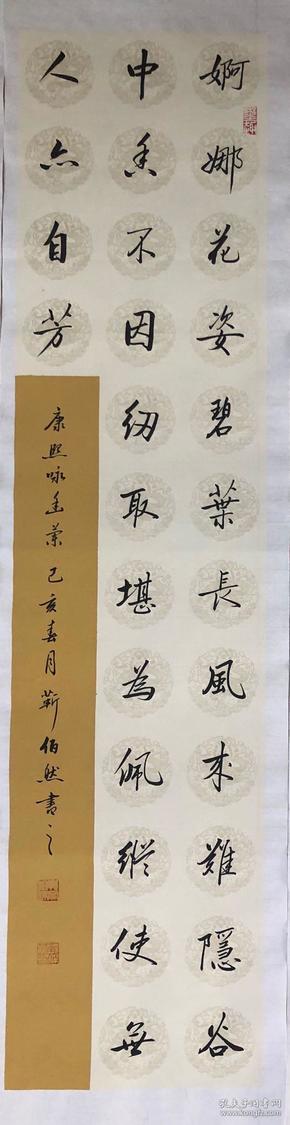 婀娜花姿碧葉長風来難隱谷
中香不因紉取堪為佩縱使無
人亦自芳
康熙咏幽蘭己亥春月靳伯然書之
孔夫子旧书网